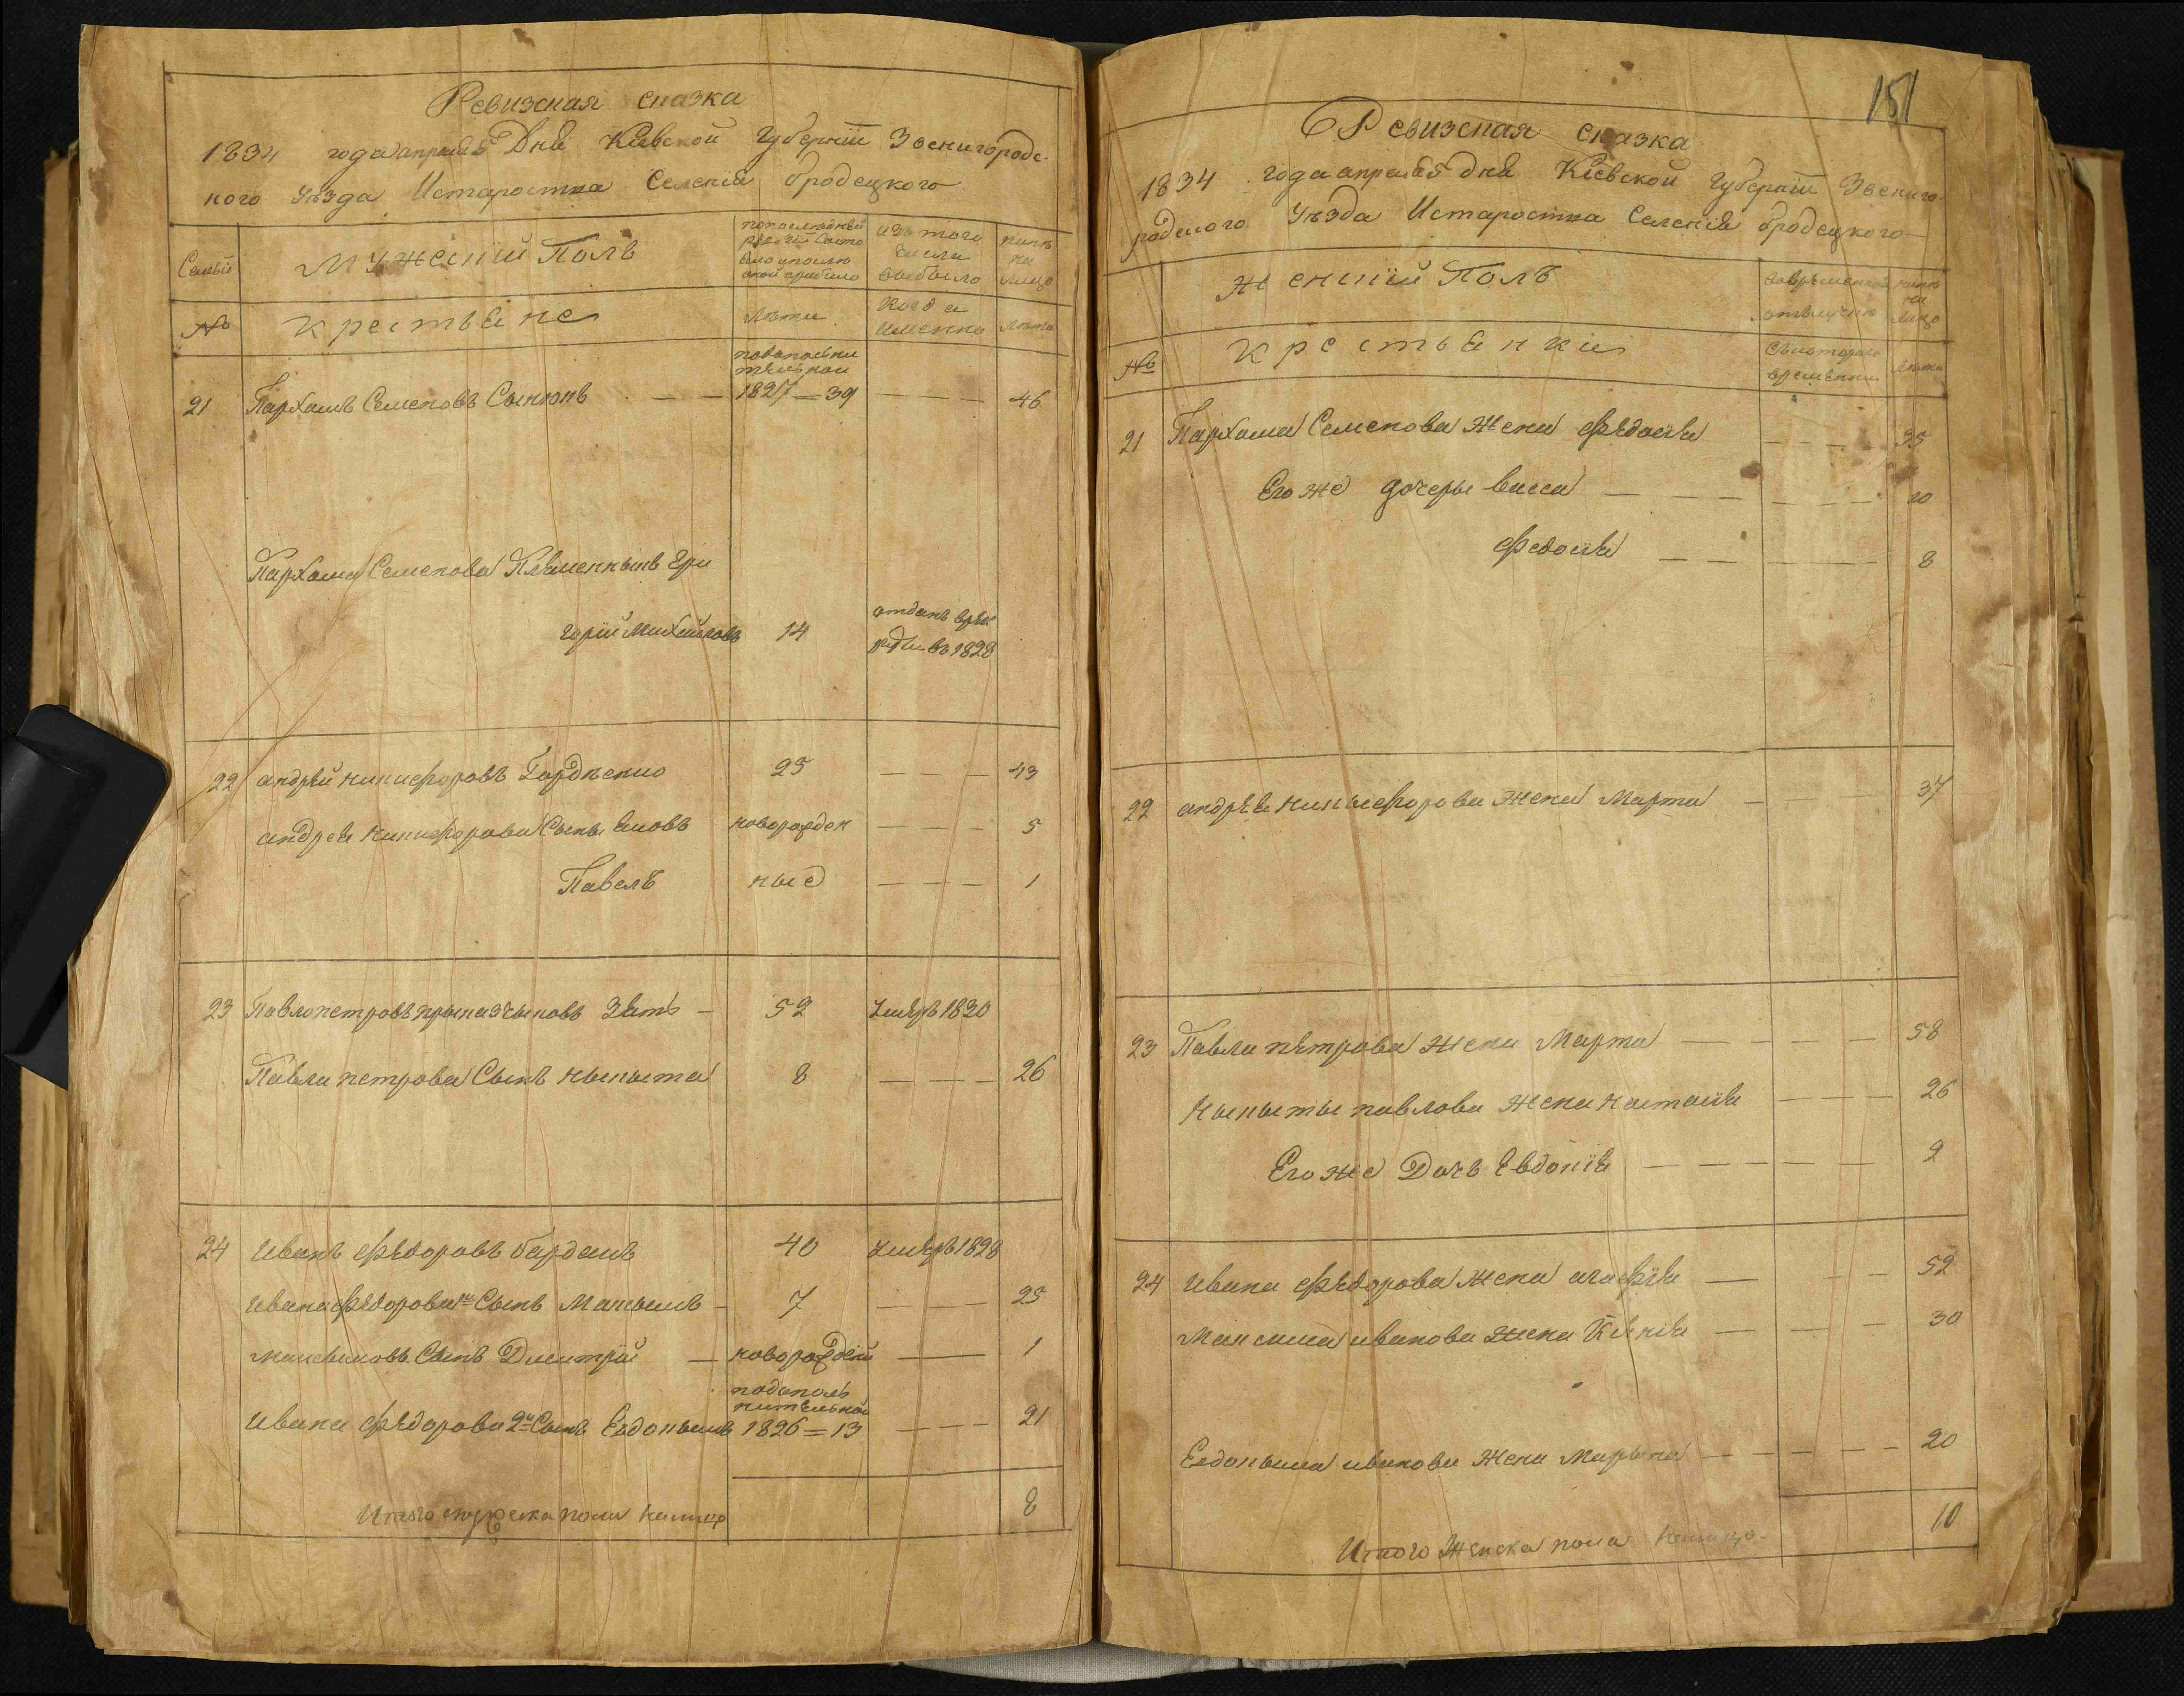 Ревизская сказка
1834 года апреля 25 Дня Киевской Губернiи Звенигородс-
кого уѣзда Истаростка Селенiя бродецкого
Семьи
Мужескiй Полъ
изъ того числа выбыло
нынѣ на лицо
№
крестьяне
Лѣта
Когда именно
Лѣта
подополни
тельной
21 Пархомъ Семеновъ — — 1827 — 39 — — — 46
Пархома Семенова Племенныкъ Гри
горiй Михайловъ 14
отданъ врек
руты въ 1828
22 андрѣй никифоровъ Гордѣенко 25 — — — 43
андрея никифорова Сыны новорожден — — — 5
Павелъ ные — — — 1
23 Павло петровъ зять — 52 умеръ 1830
Павла петрова Сынъ Мыкыта 8 — — — 26
24 Иванъ федоровъ бардашъ 40 умеръ 1828
Ивана федорова 1й Сынъ Макъсимъ — 7 — — — 25
максымовъ Сынъ Дмитрiй — новорожденй — 1
подополъ
нительной
Ивана федорова 2й Сынъ Евдокымъ 1826 = 13 — — — 21
Итого мужеска пола налицо 8
151
Ревизская сказка
1834 года апреля 25 дня Кiевской Губернiи Звениго-
родского Уѣзда Истаростка Селенiя бродецкого —
Женскiй Полъ
вовременной отлучки
нынѣ на лицо
№
крестьянки
Съкоторого времены
Лѣта
21 Пархома Семенова Жена федосiя — — — 35
Его же дочеры васса — — — — — — 10
федосiя — — — — — 8
22 андрѣя никыфорова жена Марта — — — 37
23 Павла пѣтрова Жена Марта — — — — — 58
Мыкыты павлова жена Настасiя — — — 26
Его же Дочъ Евдокiя — — — — — 2
24 Ивана федорова Жена агафiя — — — 52
Максима ивакова жена Ксѣнiя — — — — 30
Евдокыма ивакова жена Марына — — — — — 20
Итого женска пола налицо — 10